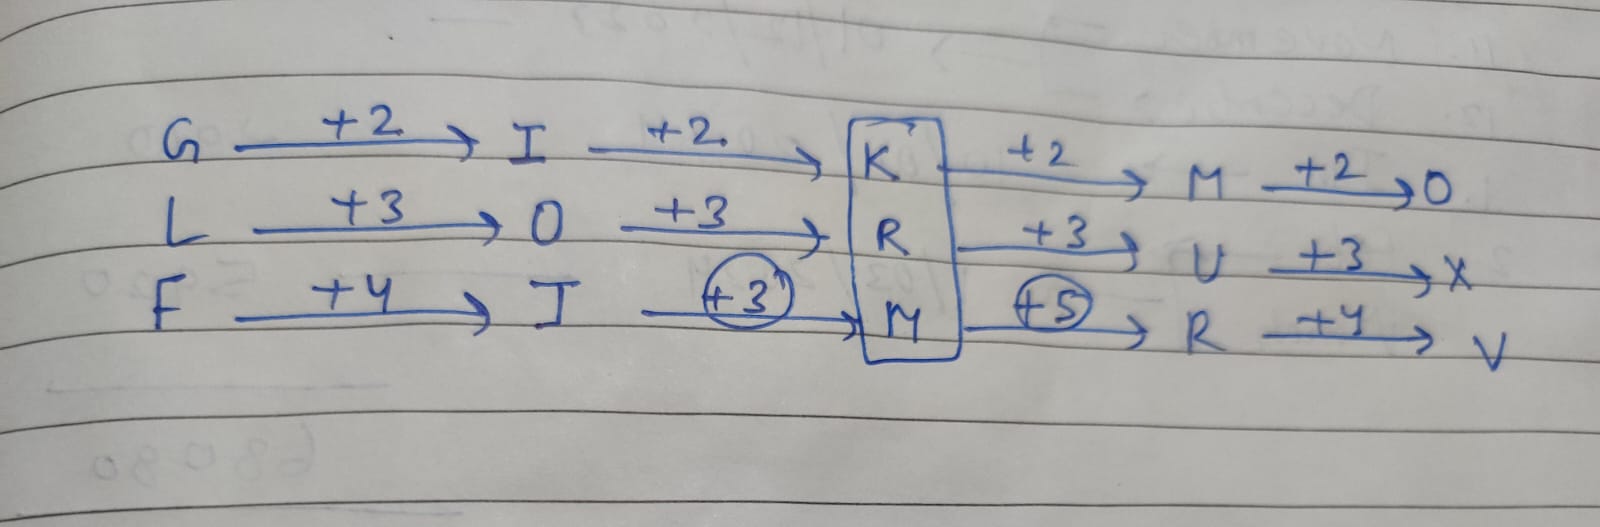 G +2 → I +2 → K +2 → M +2 → O
L +3 → O +3 → R +3 → U +3 → X
F +4 → J +3 → M +5 → R +4 → V